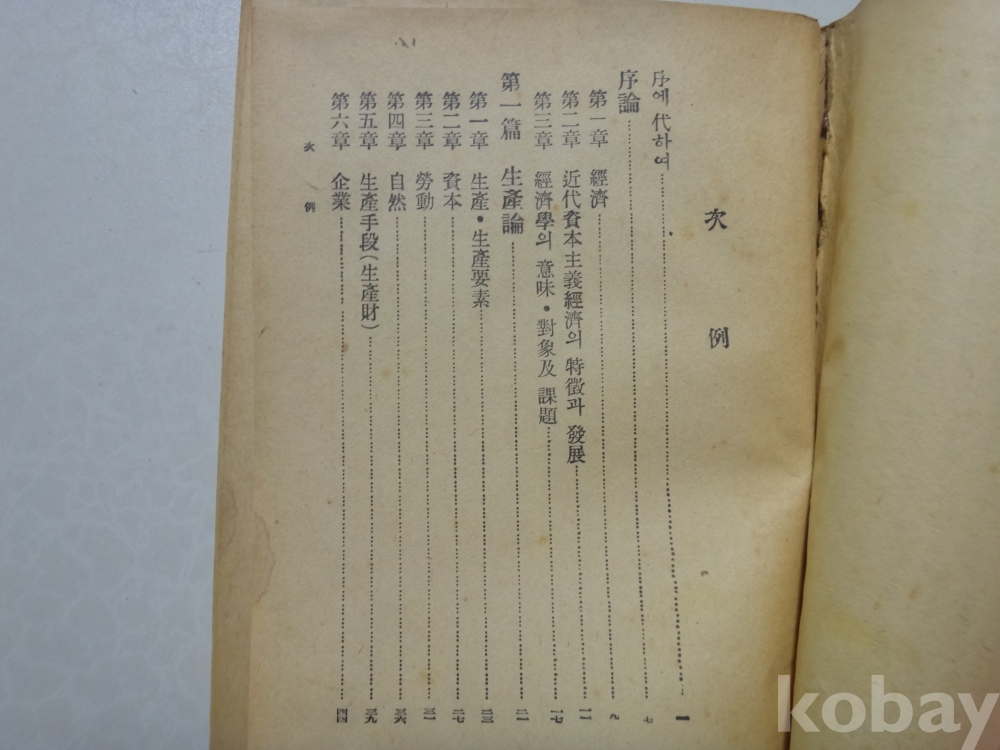 次例
序에 代하여 一
序論 七
第一章 經濟 九
第二章 近代資本主義經濟의 特徵과 發展 一一
第三章 經濟學의 意味・對象及 課題 一七
第一篇 生產論 二一
第一章 生產・生產要素 二三
第二章 資本 二七
第三章 勞動 三一
第四章 自然 三六
第五章 生產手段(生產財) 三九
第六章 企業 四四
次例
kobay